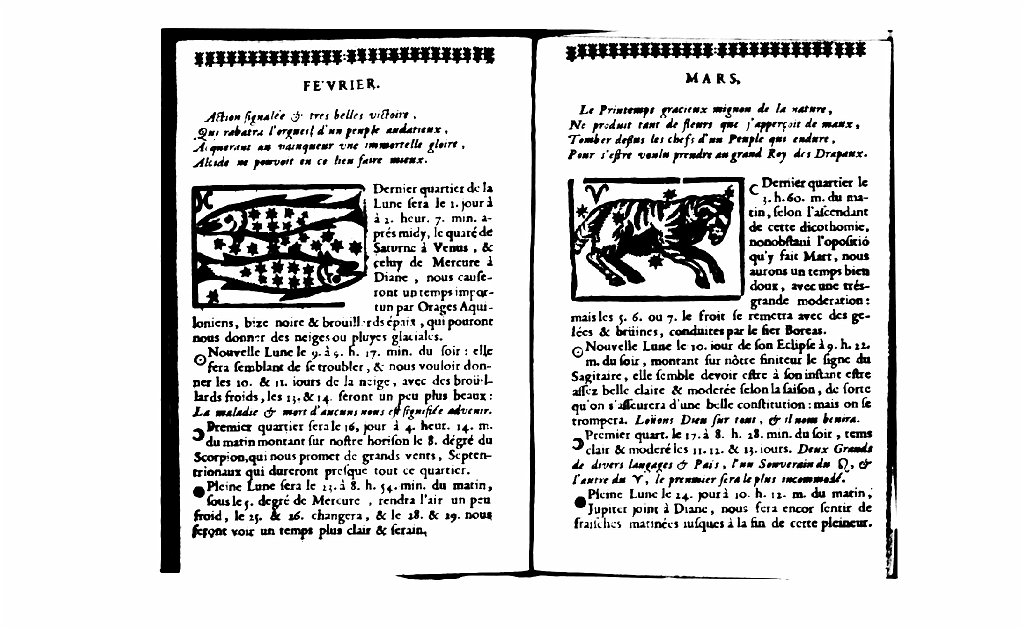 FE'VRIER.
Action signalée & tres belles victoire,
Qui rabatra l'orgueil d'un peuple audatieux,
Aiquerant au vainqueur vne immortelle gloire,
Alcide ne pouvoit en ce lieu faire mieux.
Dernier quartier de la
Lune sera le 1. jour à
à 2. heur. 7. min. a-
prés midy, le quaré de
Saturne à Venus, &
celuy de Mercure à
Diane, nous cause-
ront un temps impor-
tun par Orages Aqui-
loniens, bize noire & brouillards épaix, qui pouront
nous donner des neiges ou pluyes glaciales.
Nouvelle Lune le 9. à 5. h. 17. min. du soir : elle
fera semblant de se troubler, & nous vouloir don-
ner les 10. & 11. iours de la neige, avec des broüil-
lards froids, les 13. & 14. seront un peu plus beaux :
La maladie & mort d'aucuns nous est signifiée advenir.
Premier quartier sera le 16, jour à 4. heur. 14. m.
du matin montant sur nostre horison le 8. dégré du
Scorpion, qui nous promet de grands vents, Septen-
trionaux qui dureront presque tout ce quartier.
Pleine Lune sera le 23. à 8. h. 54. min. du matin,
sous le 5. degré de Mercure, rendra l'air un peu
froid, le 25. & 26. changera, & le 28. & 29. nous
feront voir un temps plus clair & serain,
MARS,
Le Printemps gracieux mignon de la nature,
Ne produit tant de fleurs que j'apperçoit de maux,
Tomber dessus les chefs d'un Peuple qui endure,
Pour s'estre voulu prendre au grand Roy des Drapaux.
Dernier quartier le
3. h. 60. m. du ma-
tin, selon l'ascendant
de cette dicothomie,
nonobstant l'opositió
qu'y fait Mart, nous
aurons un temps bien
doux, avec une trés-
grande moderation :
mais les 5. 6. ou 7. le froit se remettra avec des ge-
lées & brüines, conduites par le fier Boreas.
Nouvelle Lune le 10. iour de son Eclipse à 9. h. 22.
m. du soir, montant sur nôtre finiteur le signe du
Sagitaire, elle semble devoir estre à son instant estre
assez belle claire & moderée selon la saison, de sorte
qu'on s'asseurera d'une belle constitution : mais on se
trompera. Loüons Dieu sur tout, & il nous benira.
Premier quart. le 17. à 8. h. 28. min. du soir, tems
clair & moderé les 11. 12. & 13. iours. Deux Grands
de divers langages & Païs, l'un Souverain du ♌, &
l'autre du ♈, le premier sera le plus incommodé.
Pleine Lune le 24. jour à 10. h. 12. m. du matin,
Jupiter joint à Diane, nous fera encor sentir de
fraisches matinées iusques à la fin de cette pleineur.